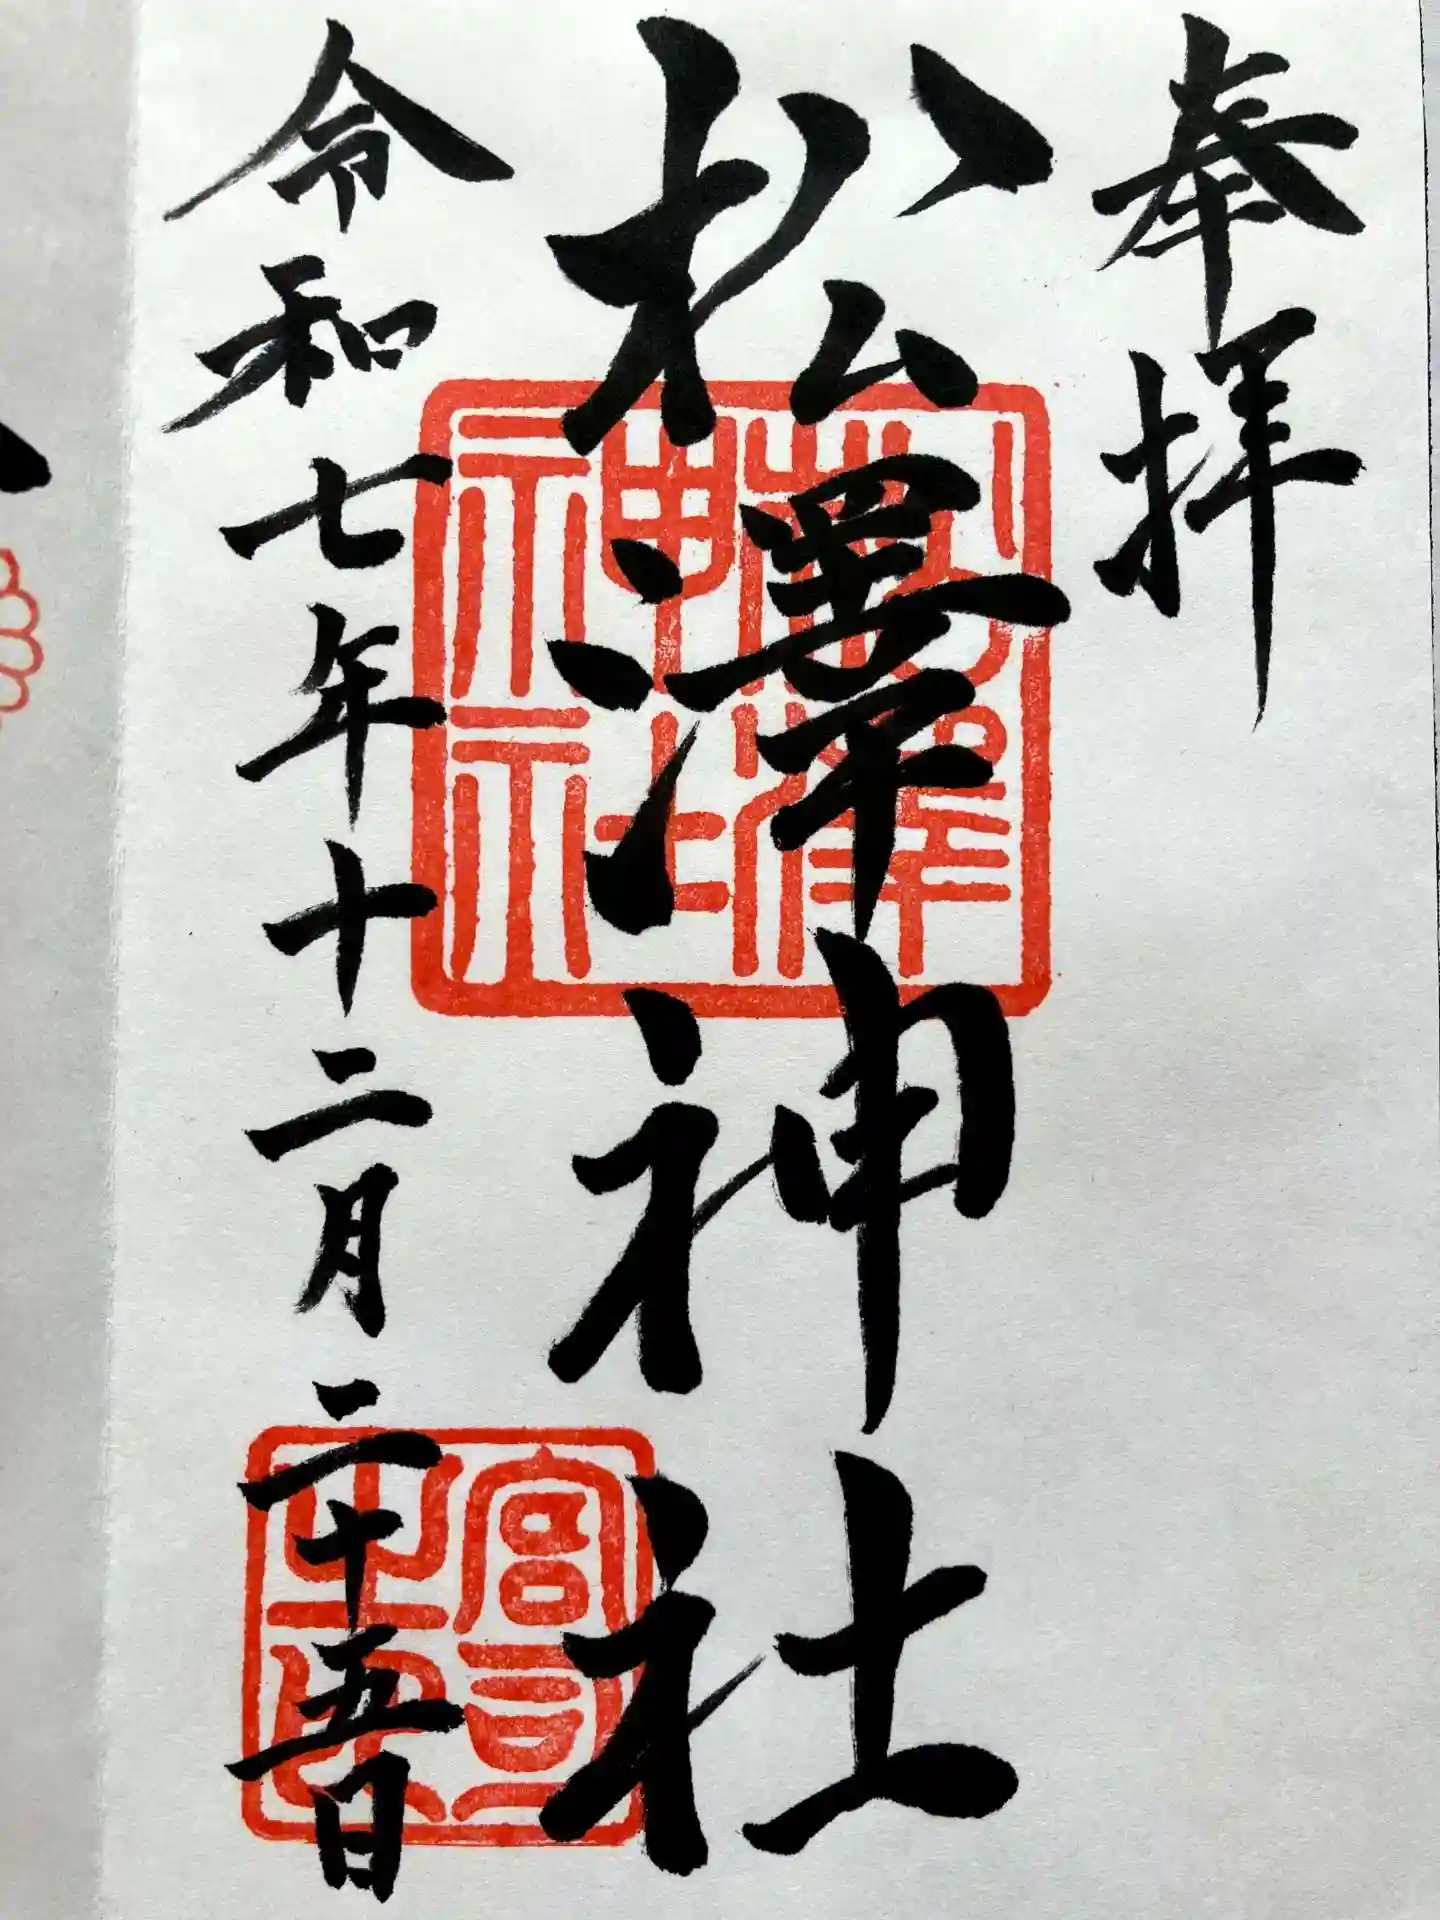 奉拝
松澤神社
令和七年十二月二十五日
松澤
神社
宮司
之印